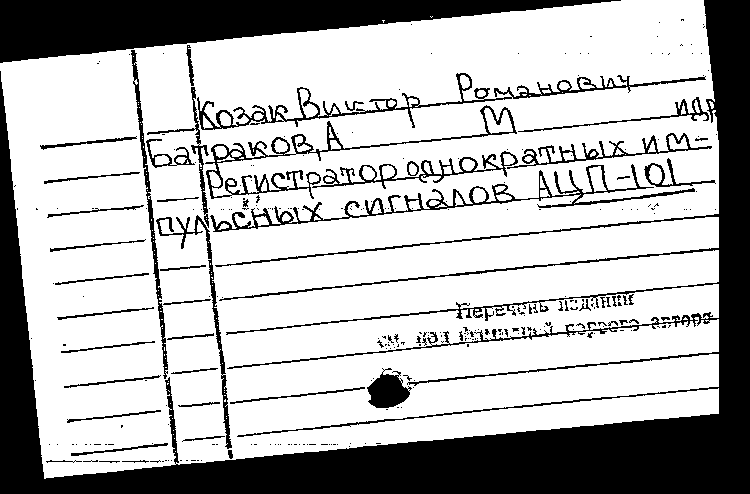 Козак, Виктор Романович
Батраков, А М и др
Регистратор однократных им-
пульсных сигналов АЦП-101
Перечень изданий
см. под фамилией первого автора